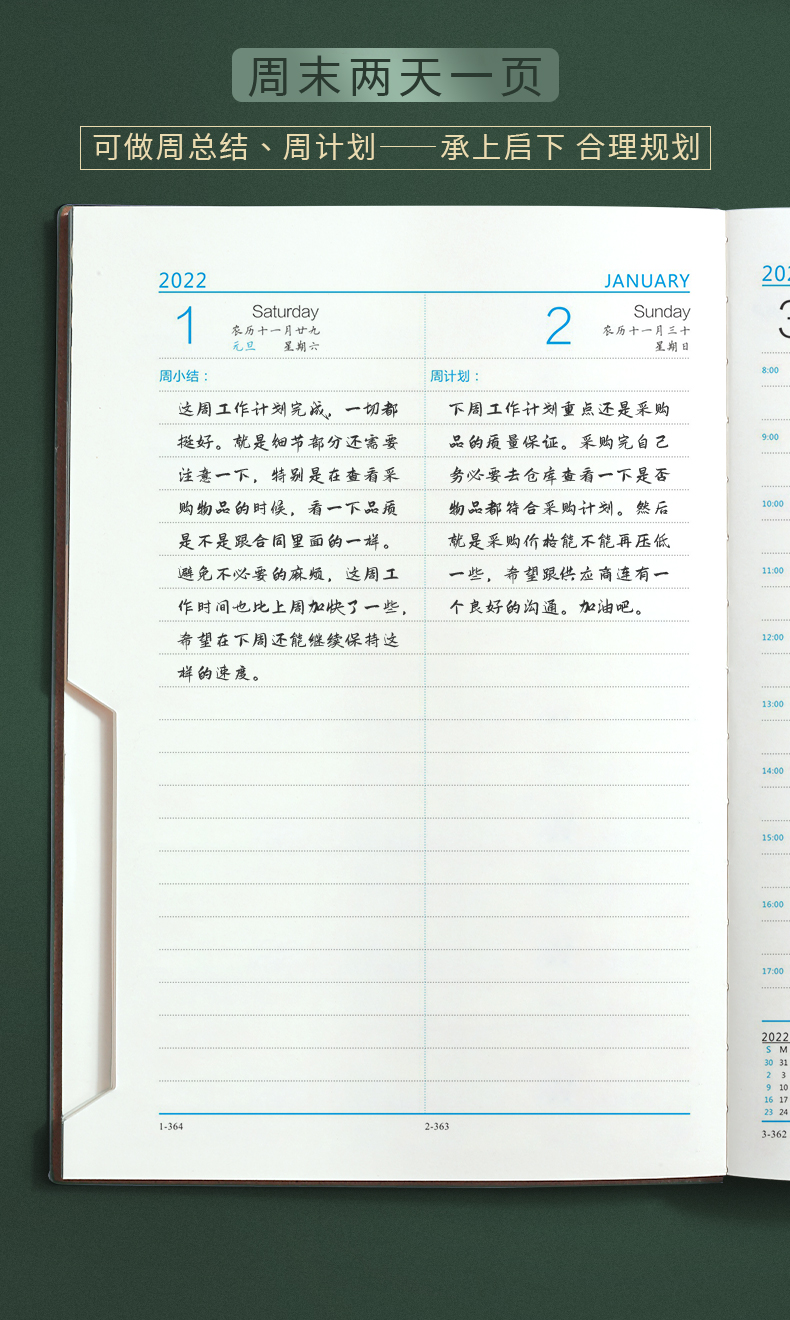 周末两天一页
可做周总结、周计划——承上启下 合理规划
2022 JANUARY
1 Saturday
农历十一月廿九
元旦 星期六
2 Sunday
农历十一月三十
星期日
周小结：
这周工作计划完成，一切都
挺好。就是细节部分还需要
注意一下，特别是在查看采
购物品的时候，看一下品质
是不是跟合同里面的一样。
避免不必要的麻烦，这周工
作时间也比上周加快了一些，
希望在下周还能继续保持这
样的速度。
周计划：
下周工作计划重点还是采购
品的质量保证。采购完自己
务必要去仓库查看一下是否
物品都符合采购计划。然后
就是采购价格能不能再压低
一些，希望跟供应商连有一
个良好的沟通。加油吧。
1-364
2-363
8:00
9:00
10:00
11:00
12:00
13:00
14:00
15:00
16:00
17:00
2022
S M
30 31
2 3
9 10
16 17
23 24
3-362